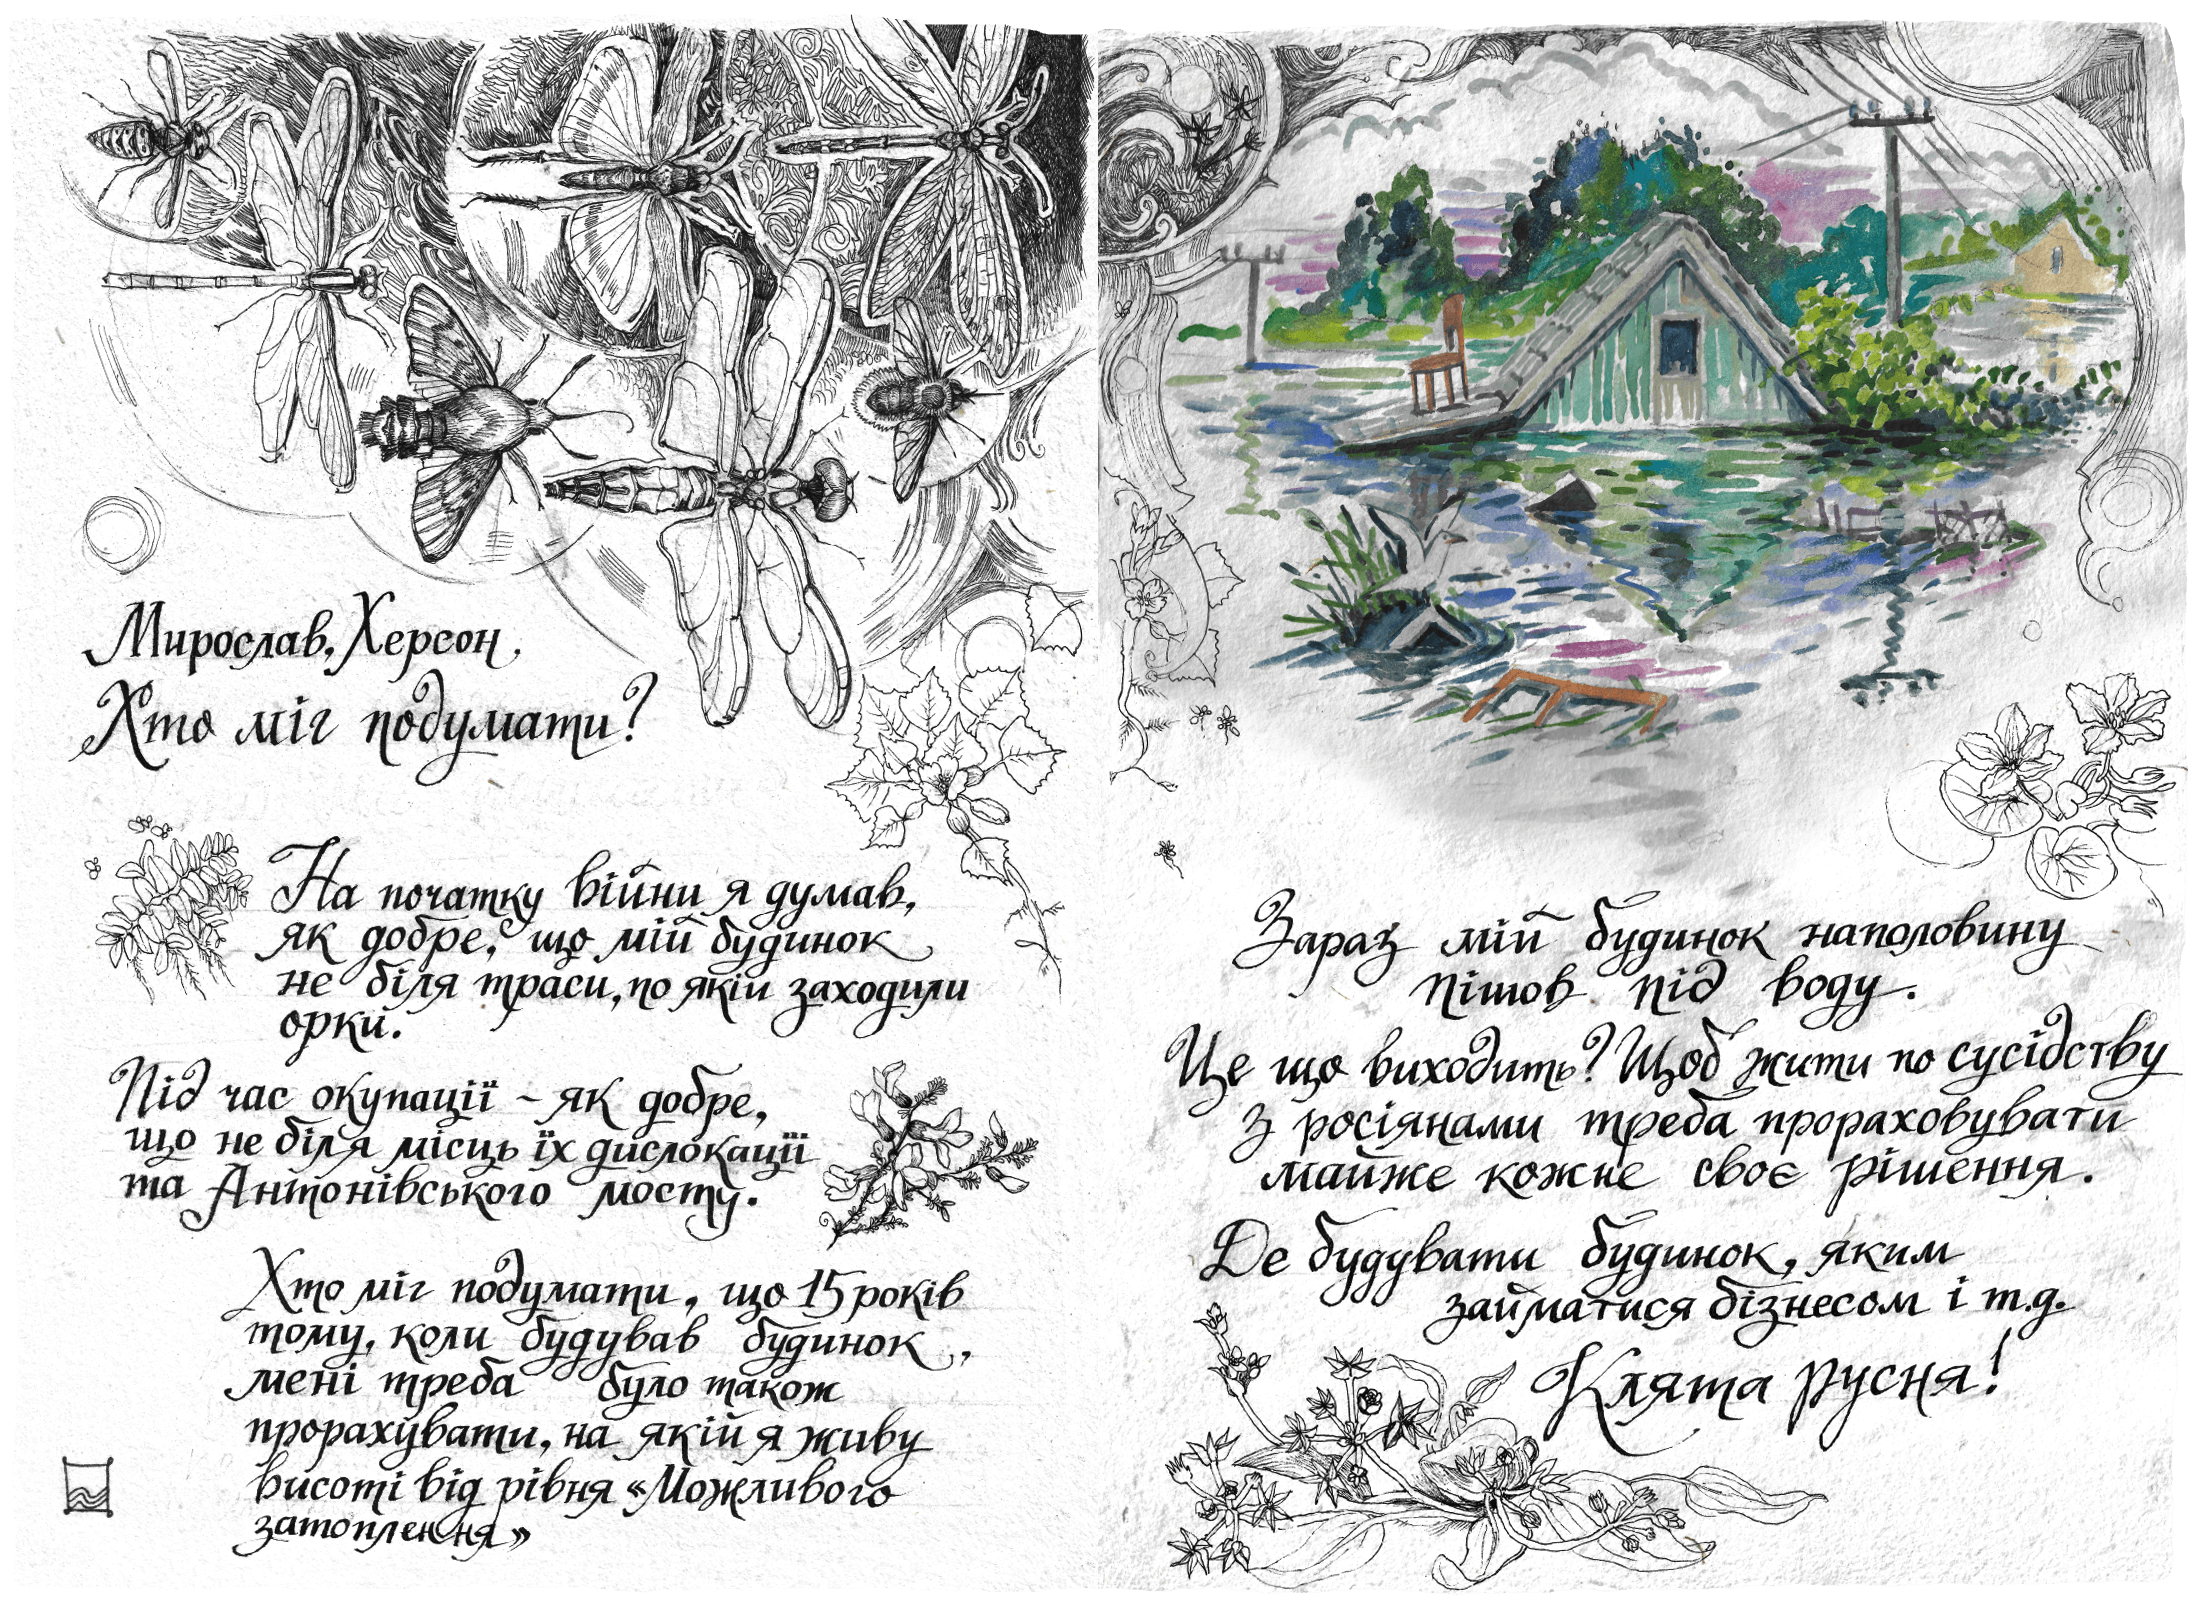 Мирослав, Херсон.
Хто міг подумати?
На початку війни я думав,
як добре, що мій будинок
не біля траси, по якій заходили
орки.
Під час окупації – як добре,
що не біля місць їх дислокації
та Антонівського мосту.
Хто міг подумати, що 15 років
тому, коли будував будинок,
мені треба було також
прорахувати, на якій я живу
висоті від рівня «Можливого
затоплення»
Зараз мій будинок наполовину
пішов під воду.
Це що виходить? Щоб жити по сусідству
з росіянами треба прораховувати
майже кожне своє рішення.
Де будувати будинок, яким
займатися бізнесом і т.д.
Клята русня!